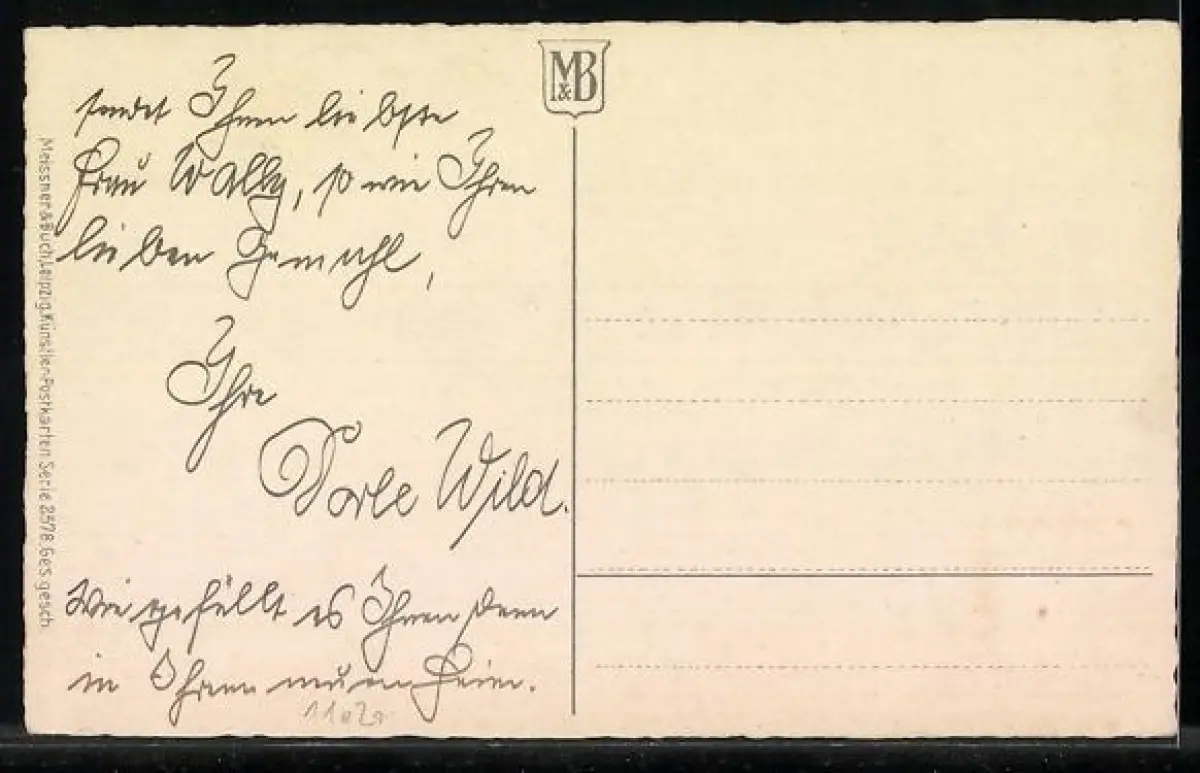 sendet Ihnen liebste
Frau Wally, sowie Ihren
lieben Gemahl,
Ihre
Dorle Wild.
Wie gefällt es Ihnen denn
in Ihrem neuen Heim.
M&B
Meissner & Buch, Leipzig, Künstler-Postkarten Serie 2578. Ges. gesch.